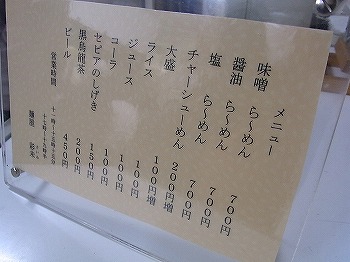 メニュー
味噌 ら～めん 700円
醤油 ら～めん 700円
塩 ら～めん 700円
チャーシューめん 200円増
大盛 100円増
ライス 100円
ジュース 100円
コーラ 100円
セピアのしげき 150円
黒烏龍茶 200円
ビール 450円
営業時間 十一時～十五時十五分
十七時～十九時半
麺屋 彩未